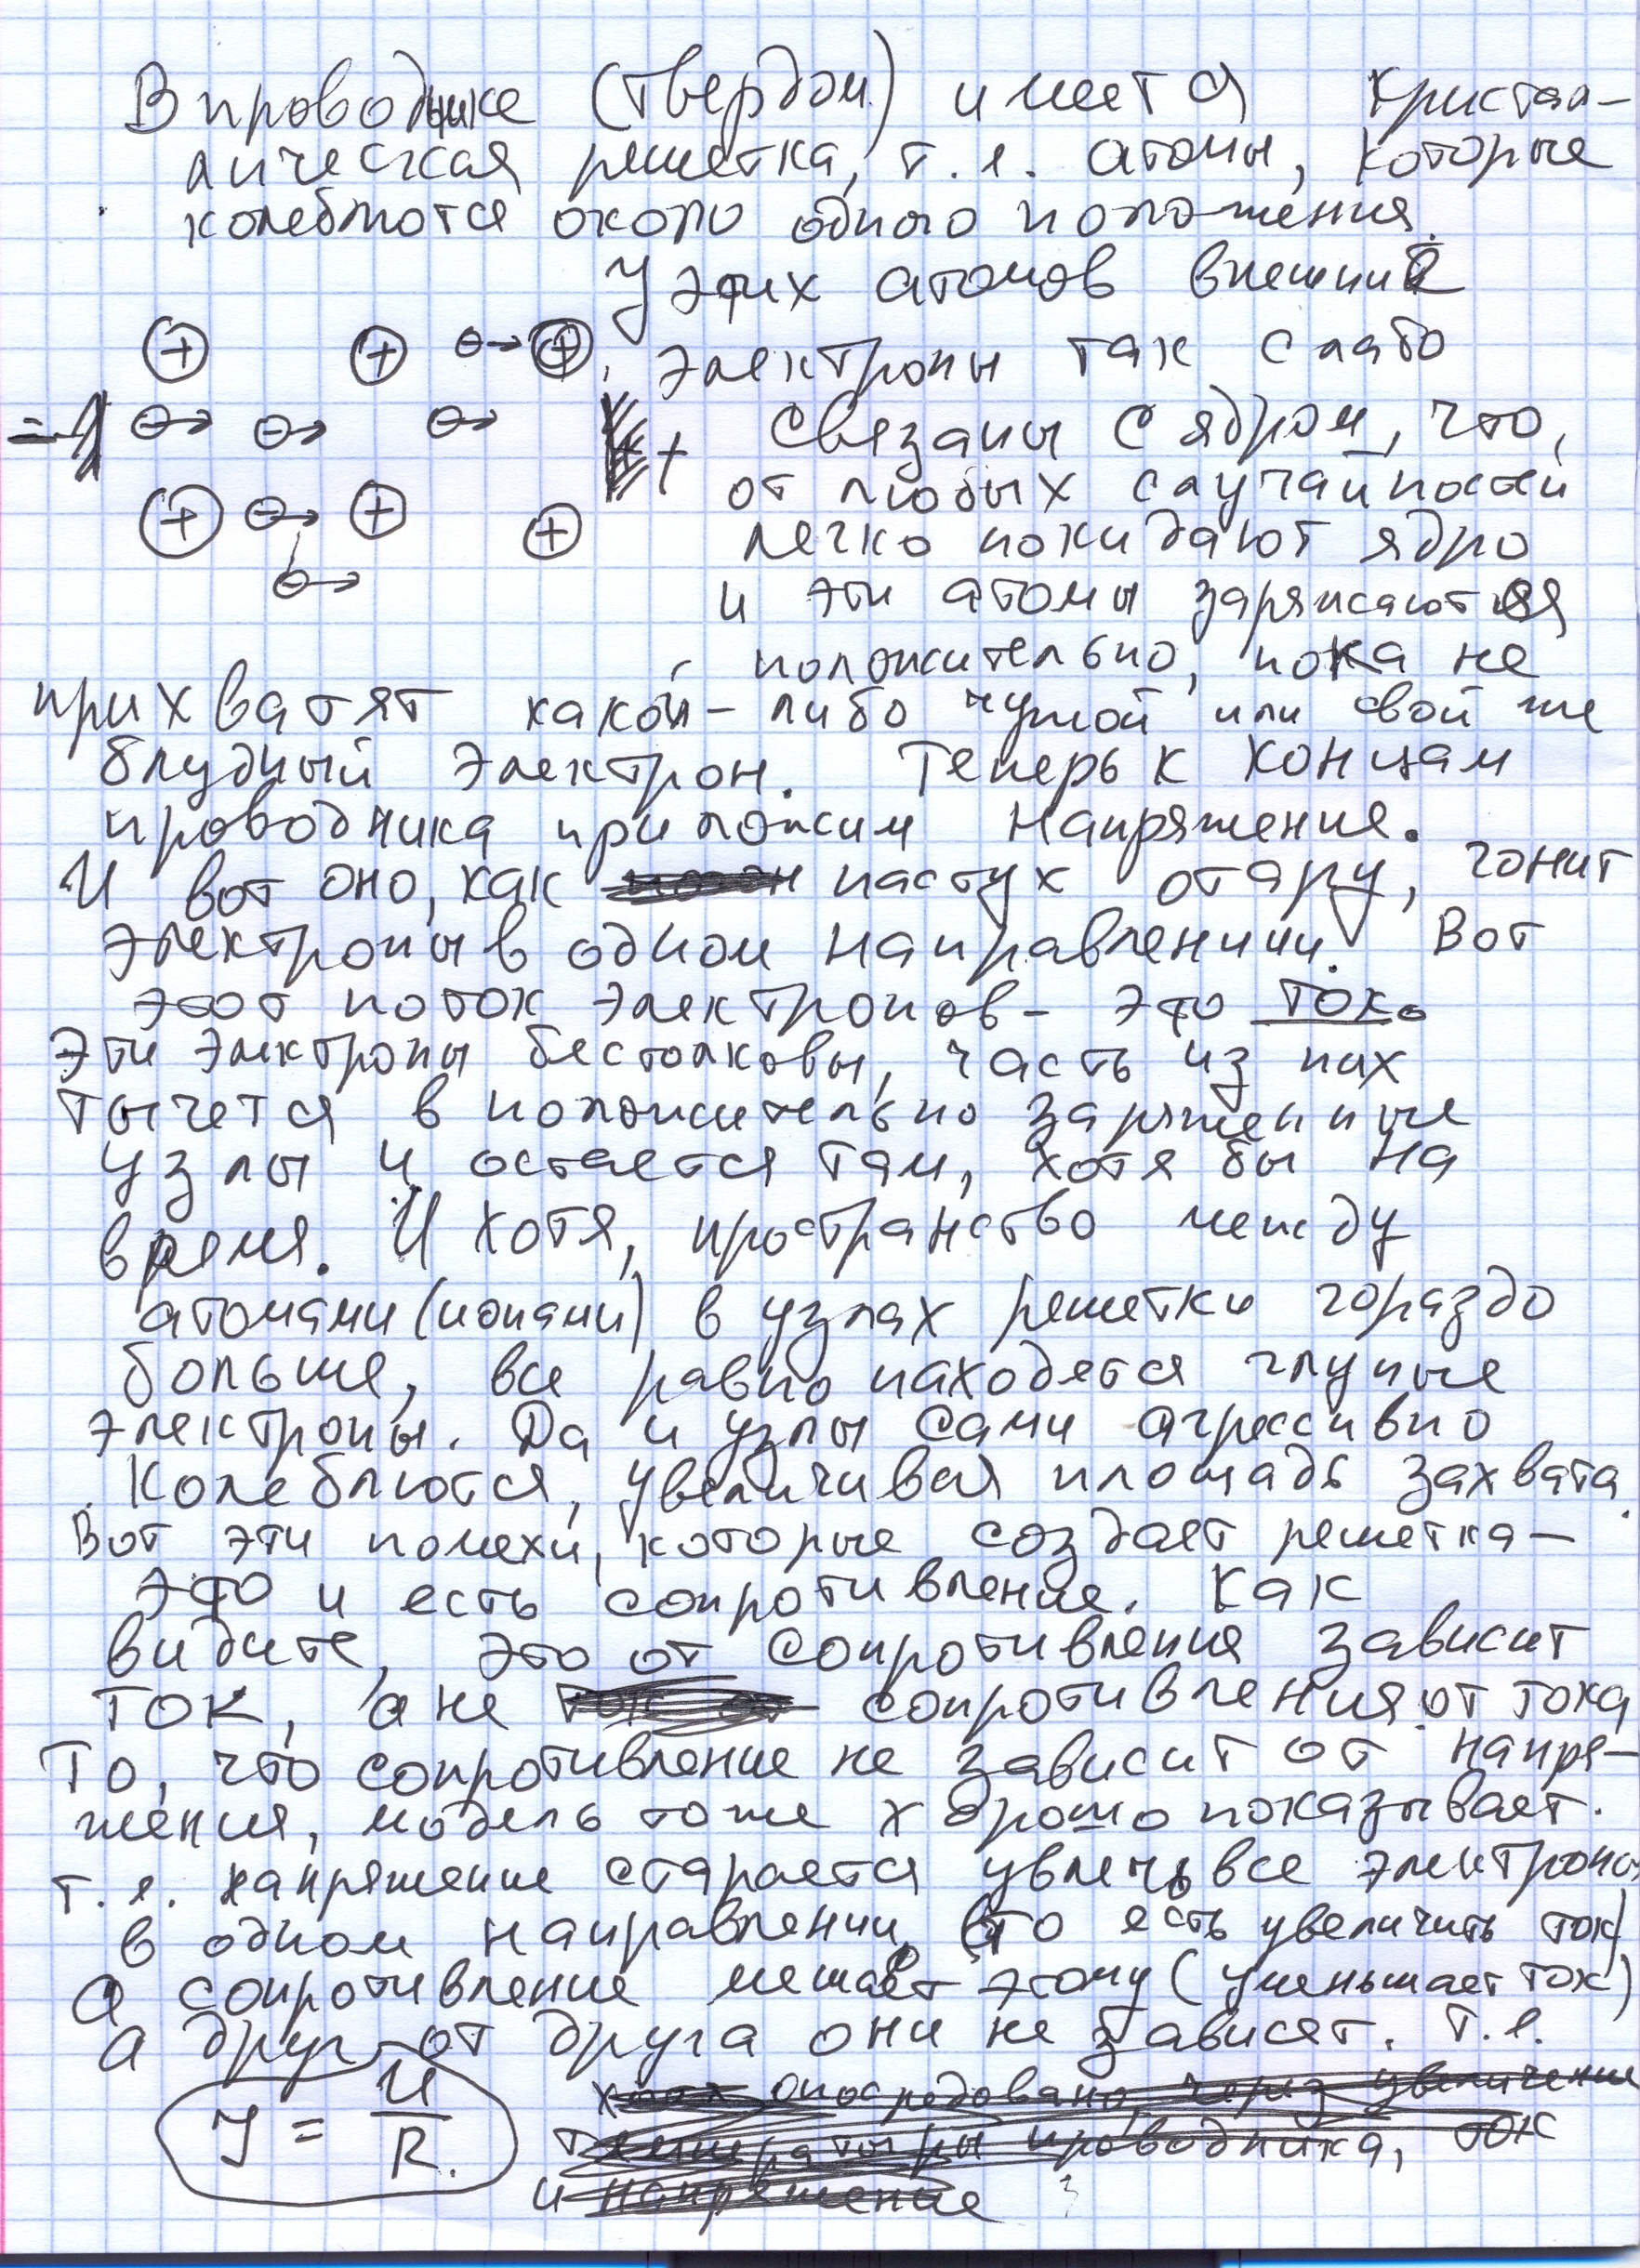 В проводнике (твердом) имеется кристал-
лическая решетка, т.е. атомы, которые
колеблются около одного положения.
У этих атомов внешние
электроны так слабо
связаны с ядром, что,
от любых случайностей
легко покидают ядро
и эти атомы заряжаются
положительно, пока не
прихватят какой-либо чужой или свой же
блудный электрон. Теперь к концам
проводника приложим напряжение.
И вот оно, как пастух отару, гонит
электроны в одном направлении. Вот
этот поток электронов - это ток.
Эти электроны бестолковы, часть из них
тычется в положительно заряженные
узлы и остается там, хотя бы на
время. И хотя, пространство между
атомами (ионами) в узлах решетки гораздо
больше, все равно находятся глупые
электроны. Да и узлы сами агрессивно
колеблются, увеличивая площадь захвата.
Вот эти помехи, которые создает решетка -
это и есть сопротивление. Как
видите, это от сопротивления зависит
ток, а не сопротивления от тока
То, что сопротивление не зависит от напря-
жения, модель тоже хорошо показывает.
т.е. напряжение старается увлечь все электроны
в одном направлении, (то есть увеличить ток)
а сопротивление мешает этому (уменьшает ток)
а друг от друга они не зависят. Т.е.
опосредовано, через увеличение
J = U / R.
температуры проводника, ток
и напряжение